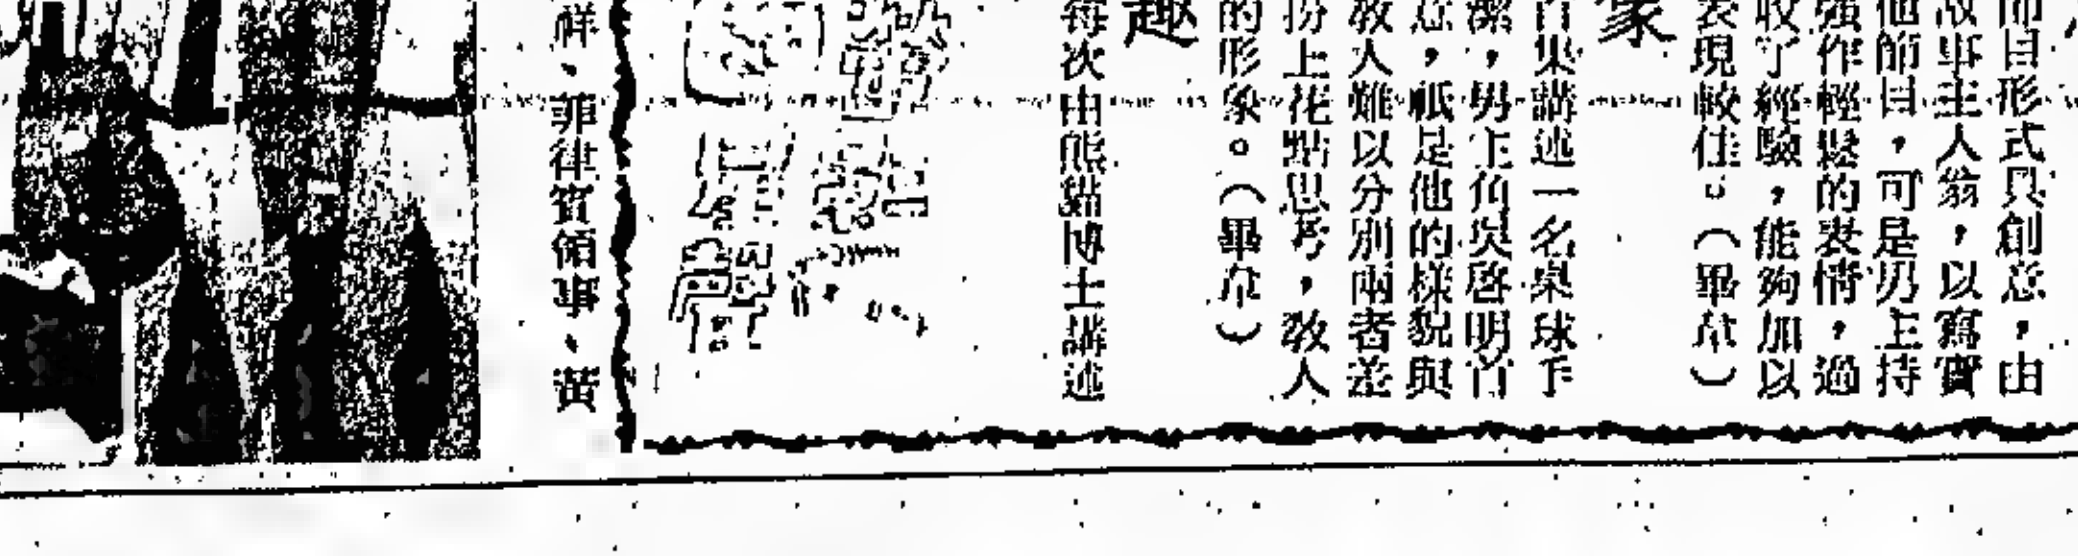 而目形式具創意，由
故事主人翁，以寫實
他節目，可是仍主持
強作輕鬆的表情，過
收了經驗，能夠加以
表現較佳。（畢
象
首集講述一名桌球手
潔，男主角吳啓明首
意，祇是他的樣貌與
教人難以分別兩者差
扮上花點思考，教人
的形象。（畢
趣
每次由熊貓博士講述
祥、菲律賓領事、黃